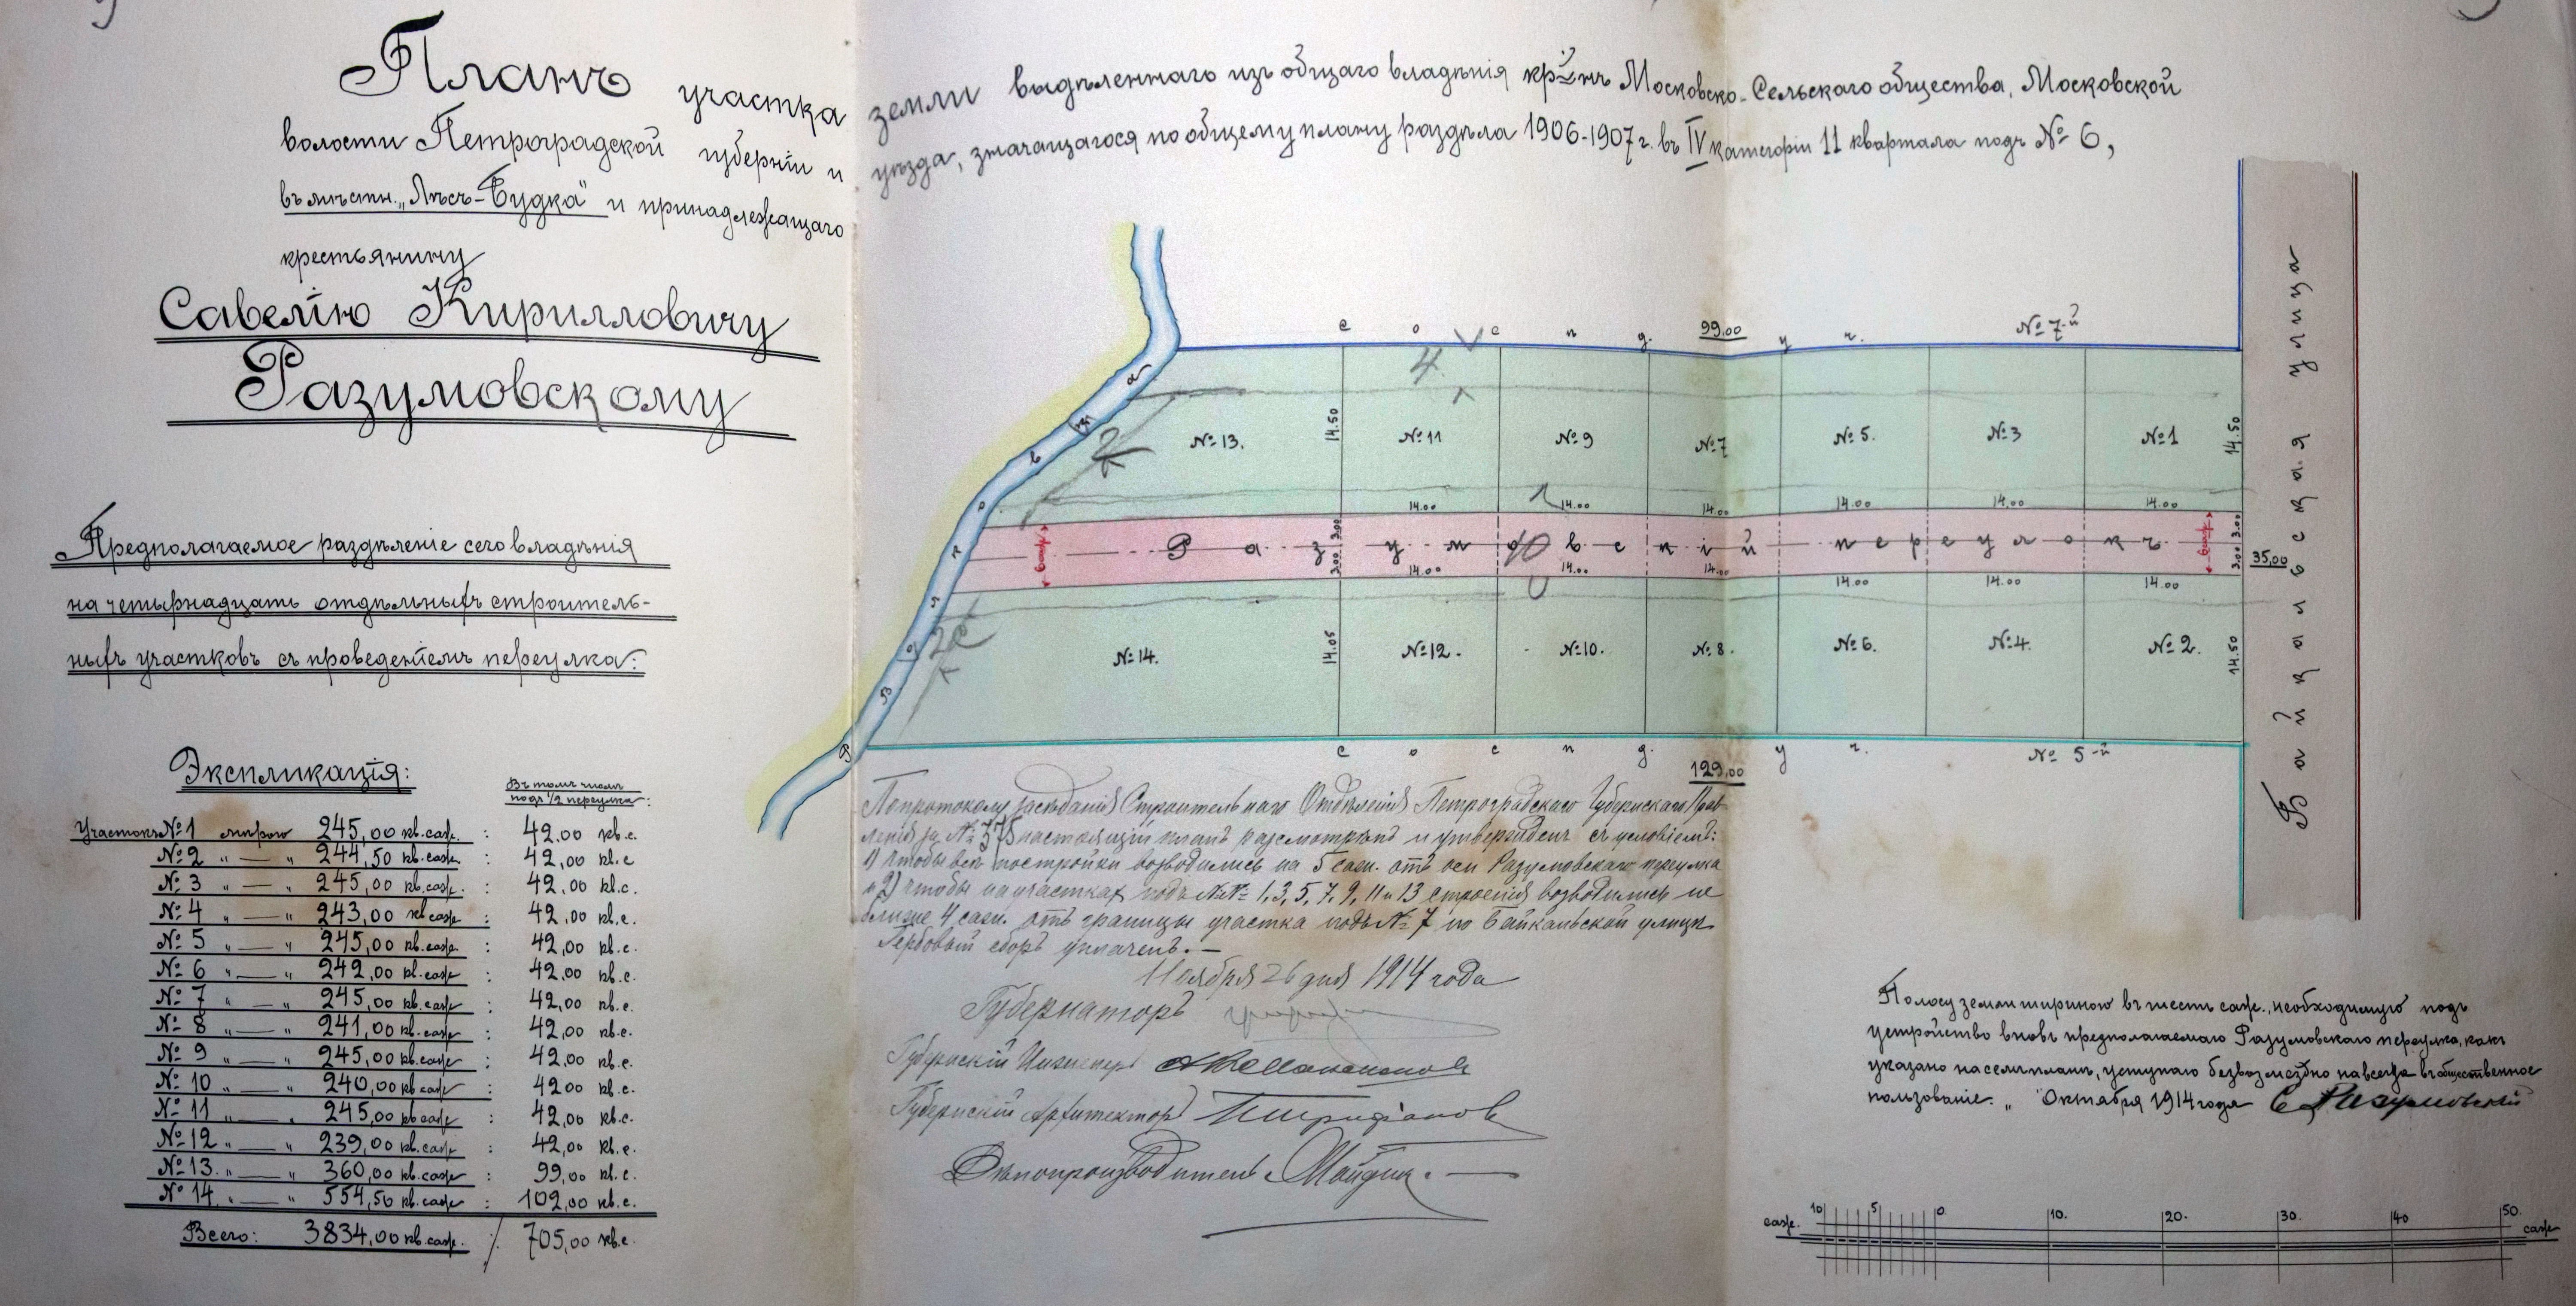 Планъ участка земли выдѣленнаго изъ общаго владѣнія кр-нъ Московско-Сельскаго общества, Московской
волости Петроградской губерніи и уѣзда, значащагося по общему плану раздѣла 1906-1907 г. въ IV категоріи 11 квартала подъ № 6,
въ мѣстн. „Лѣсъ-Будка" и принадлежащаго
крестьянину
Савелію Кирилловичу
Разумовскому
Предполагаемое раздѣленіе сего владѣнія
на четырнадцать отдѣльныхъ строитель-
ныхъ участковъ съ проведеніемъ переулка:
Экспликація:
Въ томъ числѣ
подъ 1/2 переулка:
Участокъ № 1 мѣрою 245,00 кв. саж. : 42,00 кв. с.
№ 2 „ — „ 244,50 кв. саж. : 42,00 кв. с
№ 3 „ — „ 245,00 кв. саж. : 42,00 кв. с.
№ 4 „ — „ 243,00 кв саж : 42,00 кв. с.
№ 5 „ — „ 245,00 кв. саж : 42,00 кв. с.
№ 6 „ — „ 242,00 кв. саж : 42,00 кв. с.
№ 7 „ — „ 245,00 кв. саж : 42,00 кв. с.
№ 8 „ — „ 241,00 кв. саж : 42,00 кв. с.
№ 9 „ — „ 245,00 кв. саж : 42,00 кв. с.
№ 10 „ — „ 240,00 кв саж : 42 00 кв. с.
№ 11 „ — „ 245,00 кв саж : 42,00 кв. с.
№ 12 „ — „ 239,00 кв. саж : 42,00 кв. с.
№ 13. „ — „ 360,00 кв. саж : 99,00 кв. с.
№ 14 „ — „ 554,50 кв. саж : 102,00 кв. с.
Всего: 3834,00 кв. саж. 705,00 кв. с.
сосѣд. 99,00 уч. № 7-й
4
№ 13. 14.50 № 11 № 9 № 7 № 5. № 3 № 1 14.50
2
1
14.00 14.00 14.00 14.00 14.00 14.00
6 саж 3.00 Разумовскій переулокъ 6 саж 3.00
3.00 3.00 35,00
14.00 14.00 14.00 14.00 14.00 14.00
№ 14. 14.05 № 12. № 10. № 8. № 6. № 4. № 2. 14.50
сосѣд. уч. № 5-й
129,00
Байкальская улица
По протоколу засѣданія Строительнаго Отдѣленія Петроградскаго Губернскаго Прав-
ленія за № 375 настоящій планъ разсмотрѣнъ и утвержденъ съ условіемъ:
1) чтобы всѣ постройки возводились на 5 саж. отъ оси Разумовскаго переулка
и 2) чтобы на участкахъ подъ №№ 1, 3, 5, 7, 9, 11 и 13 строенія возводились не
ближе 4 саж. отъ границы участка подъ № 7 по Байкальской улицѣ.
Гербовый сборъ уплаченъ. —
Ноября 26 дня 1914 года
Губернаторъ
Губернскій Инженеръ
Губернскій Архитекторъ
Дѣлопроизводитель
Полосу земли шириною въ шесть саж., необходимую подъ
устройство вновь предполагаемаго Разумовскаго переулка, какъ
указано на семъ планѣ, уступаю безвозмездно навсегда въ общественное
пользованіе. „ Октября 1914 года С Разумовскій
саж. 10 5 0 10. 20. 30. 40 50. саж